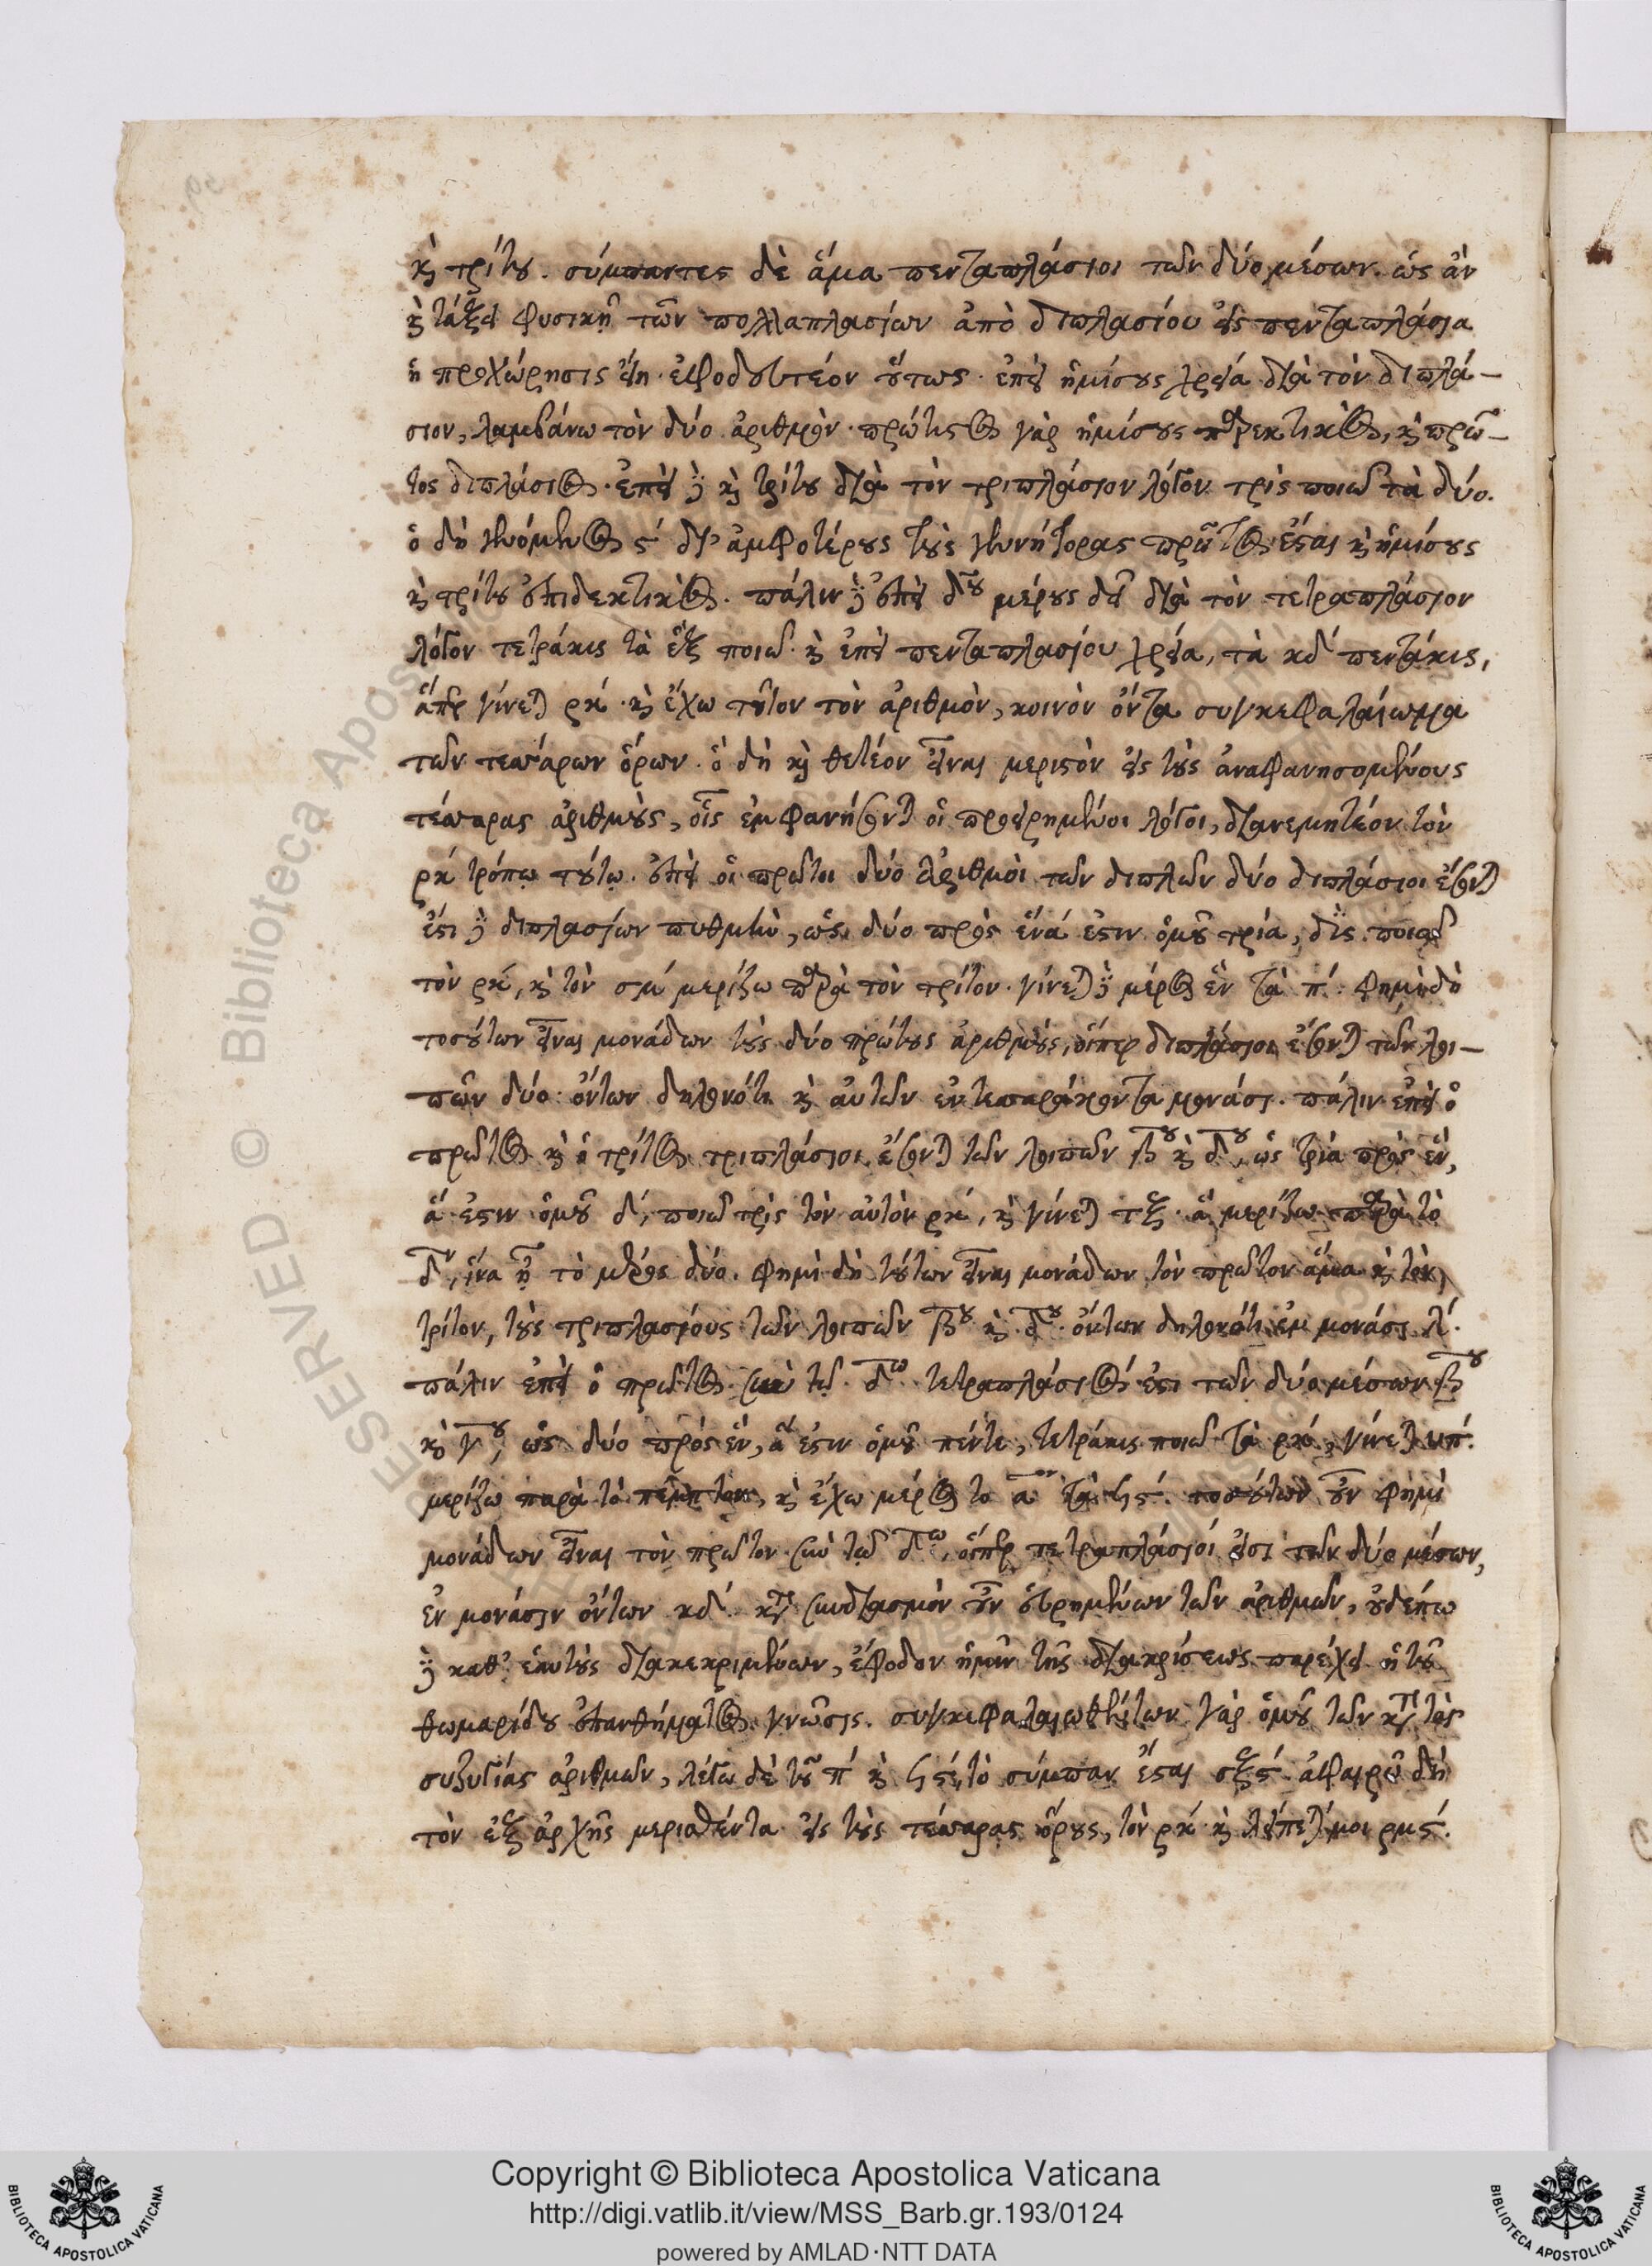 καὶ τρίτου. σύμπαντες δὲ ἅμα πενταπλάσιοι τῶν δύο μέσων. ὡς ἂν
καὶ τάξει φυσικῇ τῶν πολλαπλασίων ἀπὸ διπλασίου εἰς πενταπλάσια
ἡ προχώρησις εἴη. ἐξοδευτέον οὕτως. ἐπεὶ ἡμίσους χρεία διὰ τὸν διπλά-
σιον, λαμβάνω τὸν δύο ἀριθμὸν. πρώτιστος γὰρ ἡμίσους παρεκτικὸς, καὶ πρῶ-
τος διπλάσιος. ἐπεὶ δὲ καὶ τρίτου διὰ τὸν τριπλάσιον λόγον τρὶς ποιῶ τὰ δύο.
ὁ δὴ γενόμενος ϛ΄ δι' ἀμφοτέρους τοὺς γεννήτορας πρῶτος ἔσται καὶ ἡμίσους
καὶ τρίτου ἐπιδεκτικὸς. πάλιν δὲ ἐπεὶ δου μέρους δεῖ διὰ τὸν τετραπλάσιον
λόγον τετράκις τὰ ἓξ ποιῶ. καὶ ἐπεὶ πενταπλασίου χρεία, τὰ κδ΄ πεντάκις,
ἅπερ γίνεται ρκ΄. καὶ ἔχω τοῦτον τὸν ἀριθμὸν, κοινὸν ὄντα συγκεφαλαίωμα
τῶν τεσσάρων ὅρων. ὃ δὴ καὶ θετέον εἶναι μεριστὸν εἰς τοὺς ἀναφανησομένους
τέσσαρας ἀριθμοὺς, οἷς ἐμφανήσονται οἱ προειρημένοι λόγοι, διανεμητέον τὸν
ρκ΄ τρόπῳ τούτῳ. ἐπεὶ οἱ πρῶτοι δύο ἀριθμοὶ τῶν διπλῶν δύο διπλάσιοι ἔσονται
ἔστι δὲ διπλασίων πυθμὴν, ὡς δύο πρὸς ἕνα ἐστιν ὁμοῦ τρία, δὶς ποιῶ
τὸν ρκ΄, καὶ τὸν σμ΄ μερίζω παρὰ τὸν τρίτον. γίνεται δὲ μέρος ἓν τὰ π΄. φημὶ δὴ
τοσούτων εἶναι μονάδων τοὺς δύο πρώτους ἀριθμούς, οἵπερ διπλάσιοι ἔσονται τῶν λοι-
πῶν δύο. ὄντων δηλονότι καὶ αὐτῶν ἐν τεσσαράκοντα μονάσι. πάλιν ἐπεὶ ὁ
πρῶτος καὶ ὁ τρίτος τριπλάσιοι ἔσονται τῶν λοιπῶν βου καὶ δου, ὡς τρία πρὸς ἕν,
ἅ ἐστιν ὁμοῦ δ΄, ποιῶ τρὶς τὸν αὐτὸν ρκ΄, καὶ γίνεται τξ. ἃ μερίζω παρὰ τὸ
δον, ἵνα ᾖ τὸ μέρος δύο. φημὶ δὴ τούτων εἶναι μονάδων τὸν πρῶτον ἅμα καὶ τὸν
τρίτον, τοὺς τριπλασίους τῶν λοιπῶν βου καὶ δου. ὄντων δηλονότι ἐμ μονάσι λ΄.
πάλιν ἐπεὶ ὁ πρῶτος σὺν τῷ δῳ τετραπλάσιός ἐστι τῶν δύο μέσων βου
καὶ γου, ὡς δύο πρὸς ἕν, ἅ ἐστιν ὁμοῦ πέντε, τετράκις ποιῶ τὰ ρκ΄, γίνεται υπ΄.
μερίζω παρὰ τὸ πέμπτον, καὶ ἔχω μέρος τὸ αον τὰ ϟϛ΄. τοσούτων οὖν φημὶ
μονάδων εἶναι τὸν πρῶτον σὺν τῷ δῳ, οἵπερ τετραπλάσιοί εἰσι τῶν δύο μέσων,
ἐν μονάσιν ὄντων κδ΄. κατὰ συνδυασμὸν οὖν εὑρημένων τῶν ἀριθμῶν, οὐδέπω
δὲ καθ' ἑαυτοὺς διακεκριμένων, ἔφοδον ἡμῖν τῆς διακρίσεως παρέχει ἡ τοῦ
θωμαρίδου ἐπανθήματος γνῶσις. συγκεφαλαιωθέντων γὰρ ὁμοῦ τῶν κατὰ τὰς
συζυγίας ἀριθμῶν, λέγω δὲ τοῦ π΄ καὶ ϟϛ΄, τὸ σύμπαν ἔσται σξϛ΄. ἀφαιρῶ δὴ
τὸν ἐξ ἀρχῆς μερισθέντα εἰς τοὺς τέσσαρας ὅρους, τὸν ρκ΄. καὶ λείπεταί μοι ρμϛ΄.
Copyright © Biblioteca Apostolica Vaticana
http://digi.vatlib.it/view/MSS_Barb.gr.193/0124
powered by AMLAD·NTT DATA